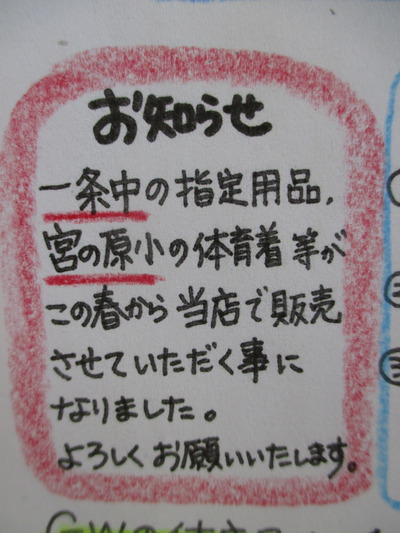 お知らせ
一条中の指定用品、
宮の原小の体育着等が
この春から当店で販売
させていただく事に
なりました。
よろしくお願いいたします。